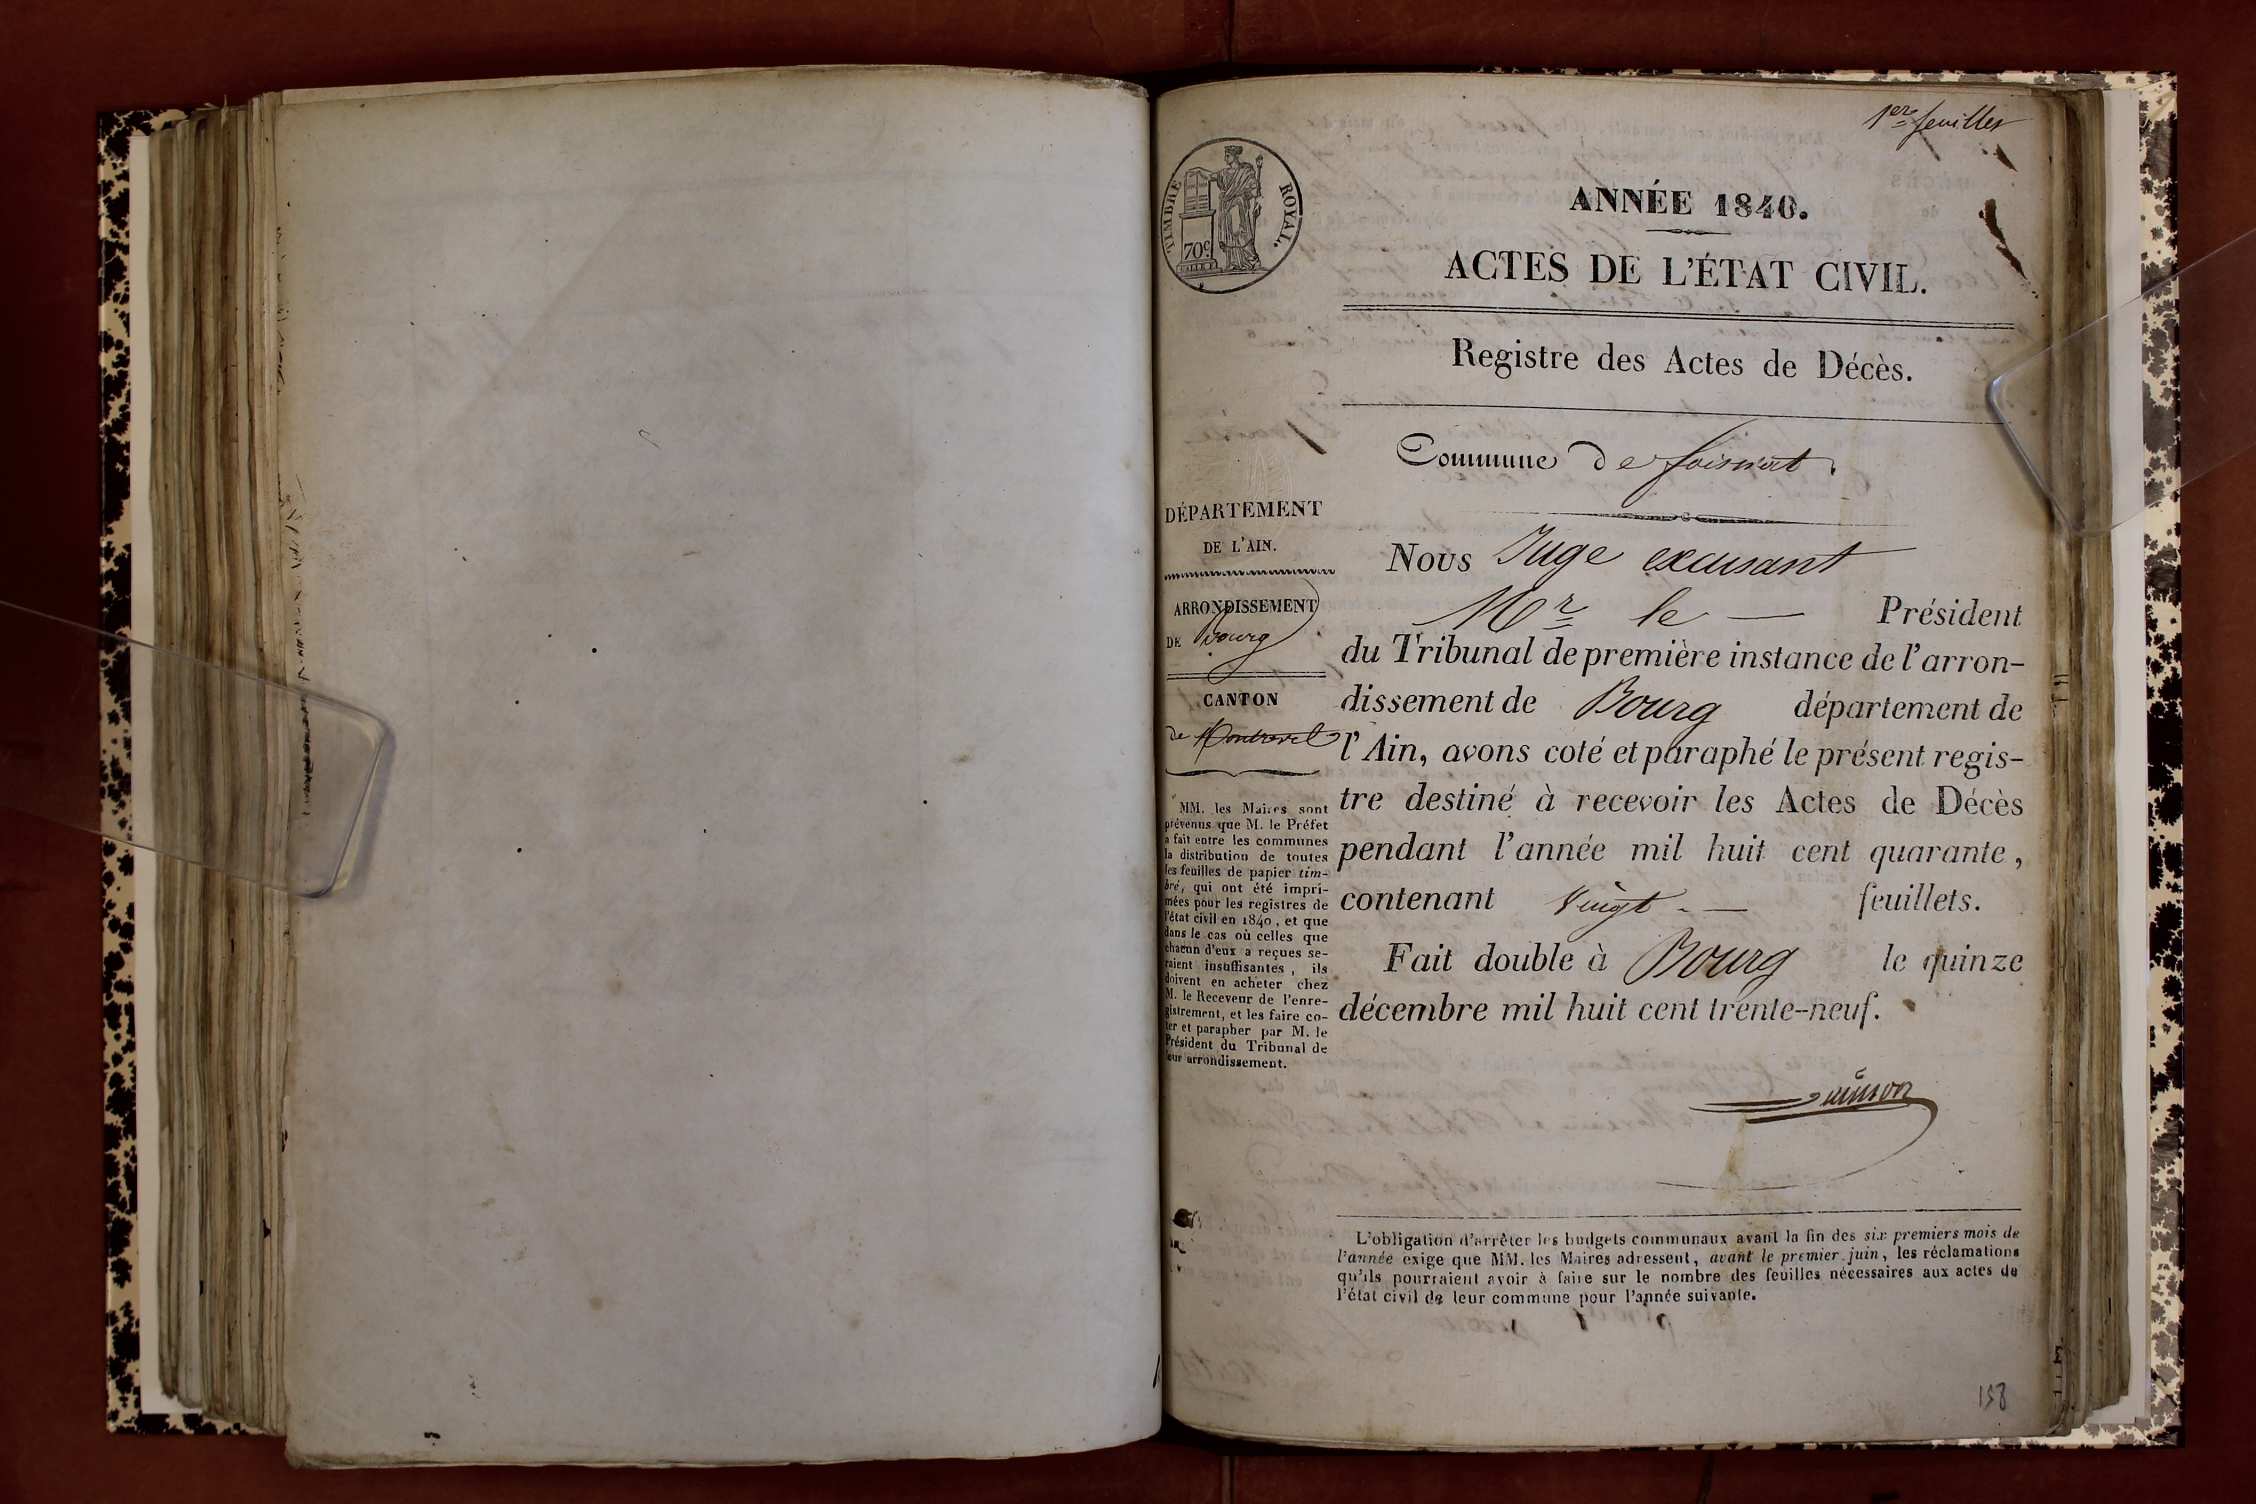 1er feuillet
TIMBRE ROYAL.
70c
ANNÉE 1840.
ACTES DE L'ÉTAT CIVIL.
Registre des Actes de Décès.
Commune de foissiat.
DÉPARTEMENT
DE L'AIN.
ARRONDISSEMENT
DE Bourg
CANTON
de Montrevel
MM. les Maires sont
prévenus que M. le Préfet
a fait entre les communes
la distribution de toutes
les feuilles de papier tim-
bré, qui ont été impri-
mées pour les registres de
l'état civil en 1840, et que
dans le cas où celles que
chacun d'eux a reçues se-
raient insuffisantes, ils
doivent en acheter chez
M. le Receveur de l'enre-
gistrement, et les faire co-
ter et parapher par M. le
Président du Tribunal de
leur arrondissement.
Nous Juge excusant
Mr le — Président
du Tribunal de première instance de l'arron-
dissement de Bourg département de
l'Ain, avons coté et paraphé le présent regis-
tre destiné à recevoir les Actes de Décès
pendant l'année mil huit cent quarante,
contenant vingt — feuillets.
Fait double à Bourg le quinze
décembre mil huit cent trente-neuf.
L'obligation d'arrêter les budgets communaux avant la fin des six premiers mois de
l'année exige que MM. les Maires adressent, avant le premier juin, les réclamations
qu'ils pourraient avoir à faire sur le nombre des feuilles nécessaires aux actes de
l'état civil de leur commune pour l'année suivante.
158